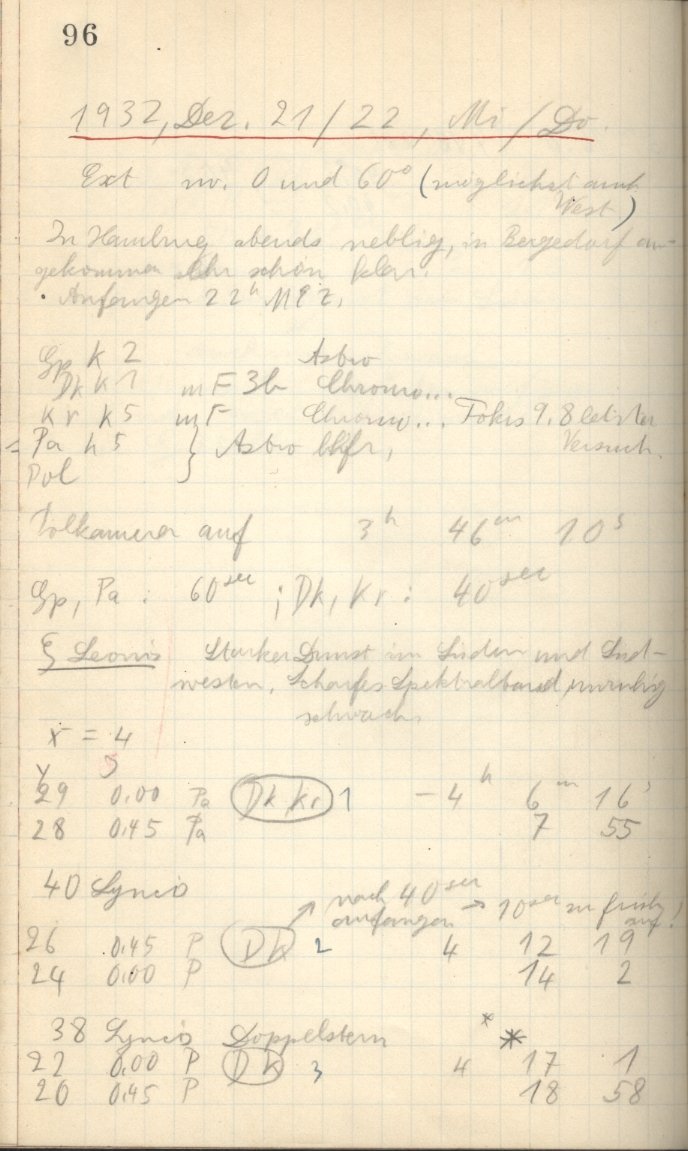 96
1932, Dez. 21/22, Mi/Do.
Ext nv. 0 und 60° (möglichst auch
West)
In Hamburg abends neblig, in Bergedorf an-
gekommen Uhr schön klar.
Anfangen 22h MEZ.
Gp K 2 Astro
Dk K 1 mF 3b Chromo...
Kr K5 mF Chromo... Fokus 9.8 letzter
Pa h 5 } Astro bhfr, Versuch.
Pol
Polkamera auf 3h 46m 10s
Gp, Pa: 60sec; Dk, Kr: 40sec
ξ Leonis Starker Dunst im Süden und Süd-
westen, Scharfes Spektralband, unruhig
schwach
x = 4
y 5
29 0.00 Pa Dk Kr 1 -4h 6m 16s
28 0.45 Pa 7 55
40 Lyncis
nach 40sec
anfangen → 10sec zu früh
auf!
26 0.45 P DK 2 4 12 19
24 0.00 P 14 2
38 Lyncis Doppelstern * *
22 0.00 P DK 3 4 17 1
20 0.45 P 18 58